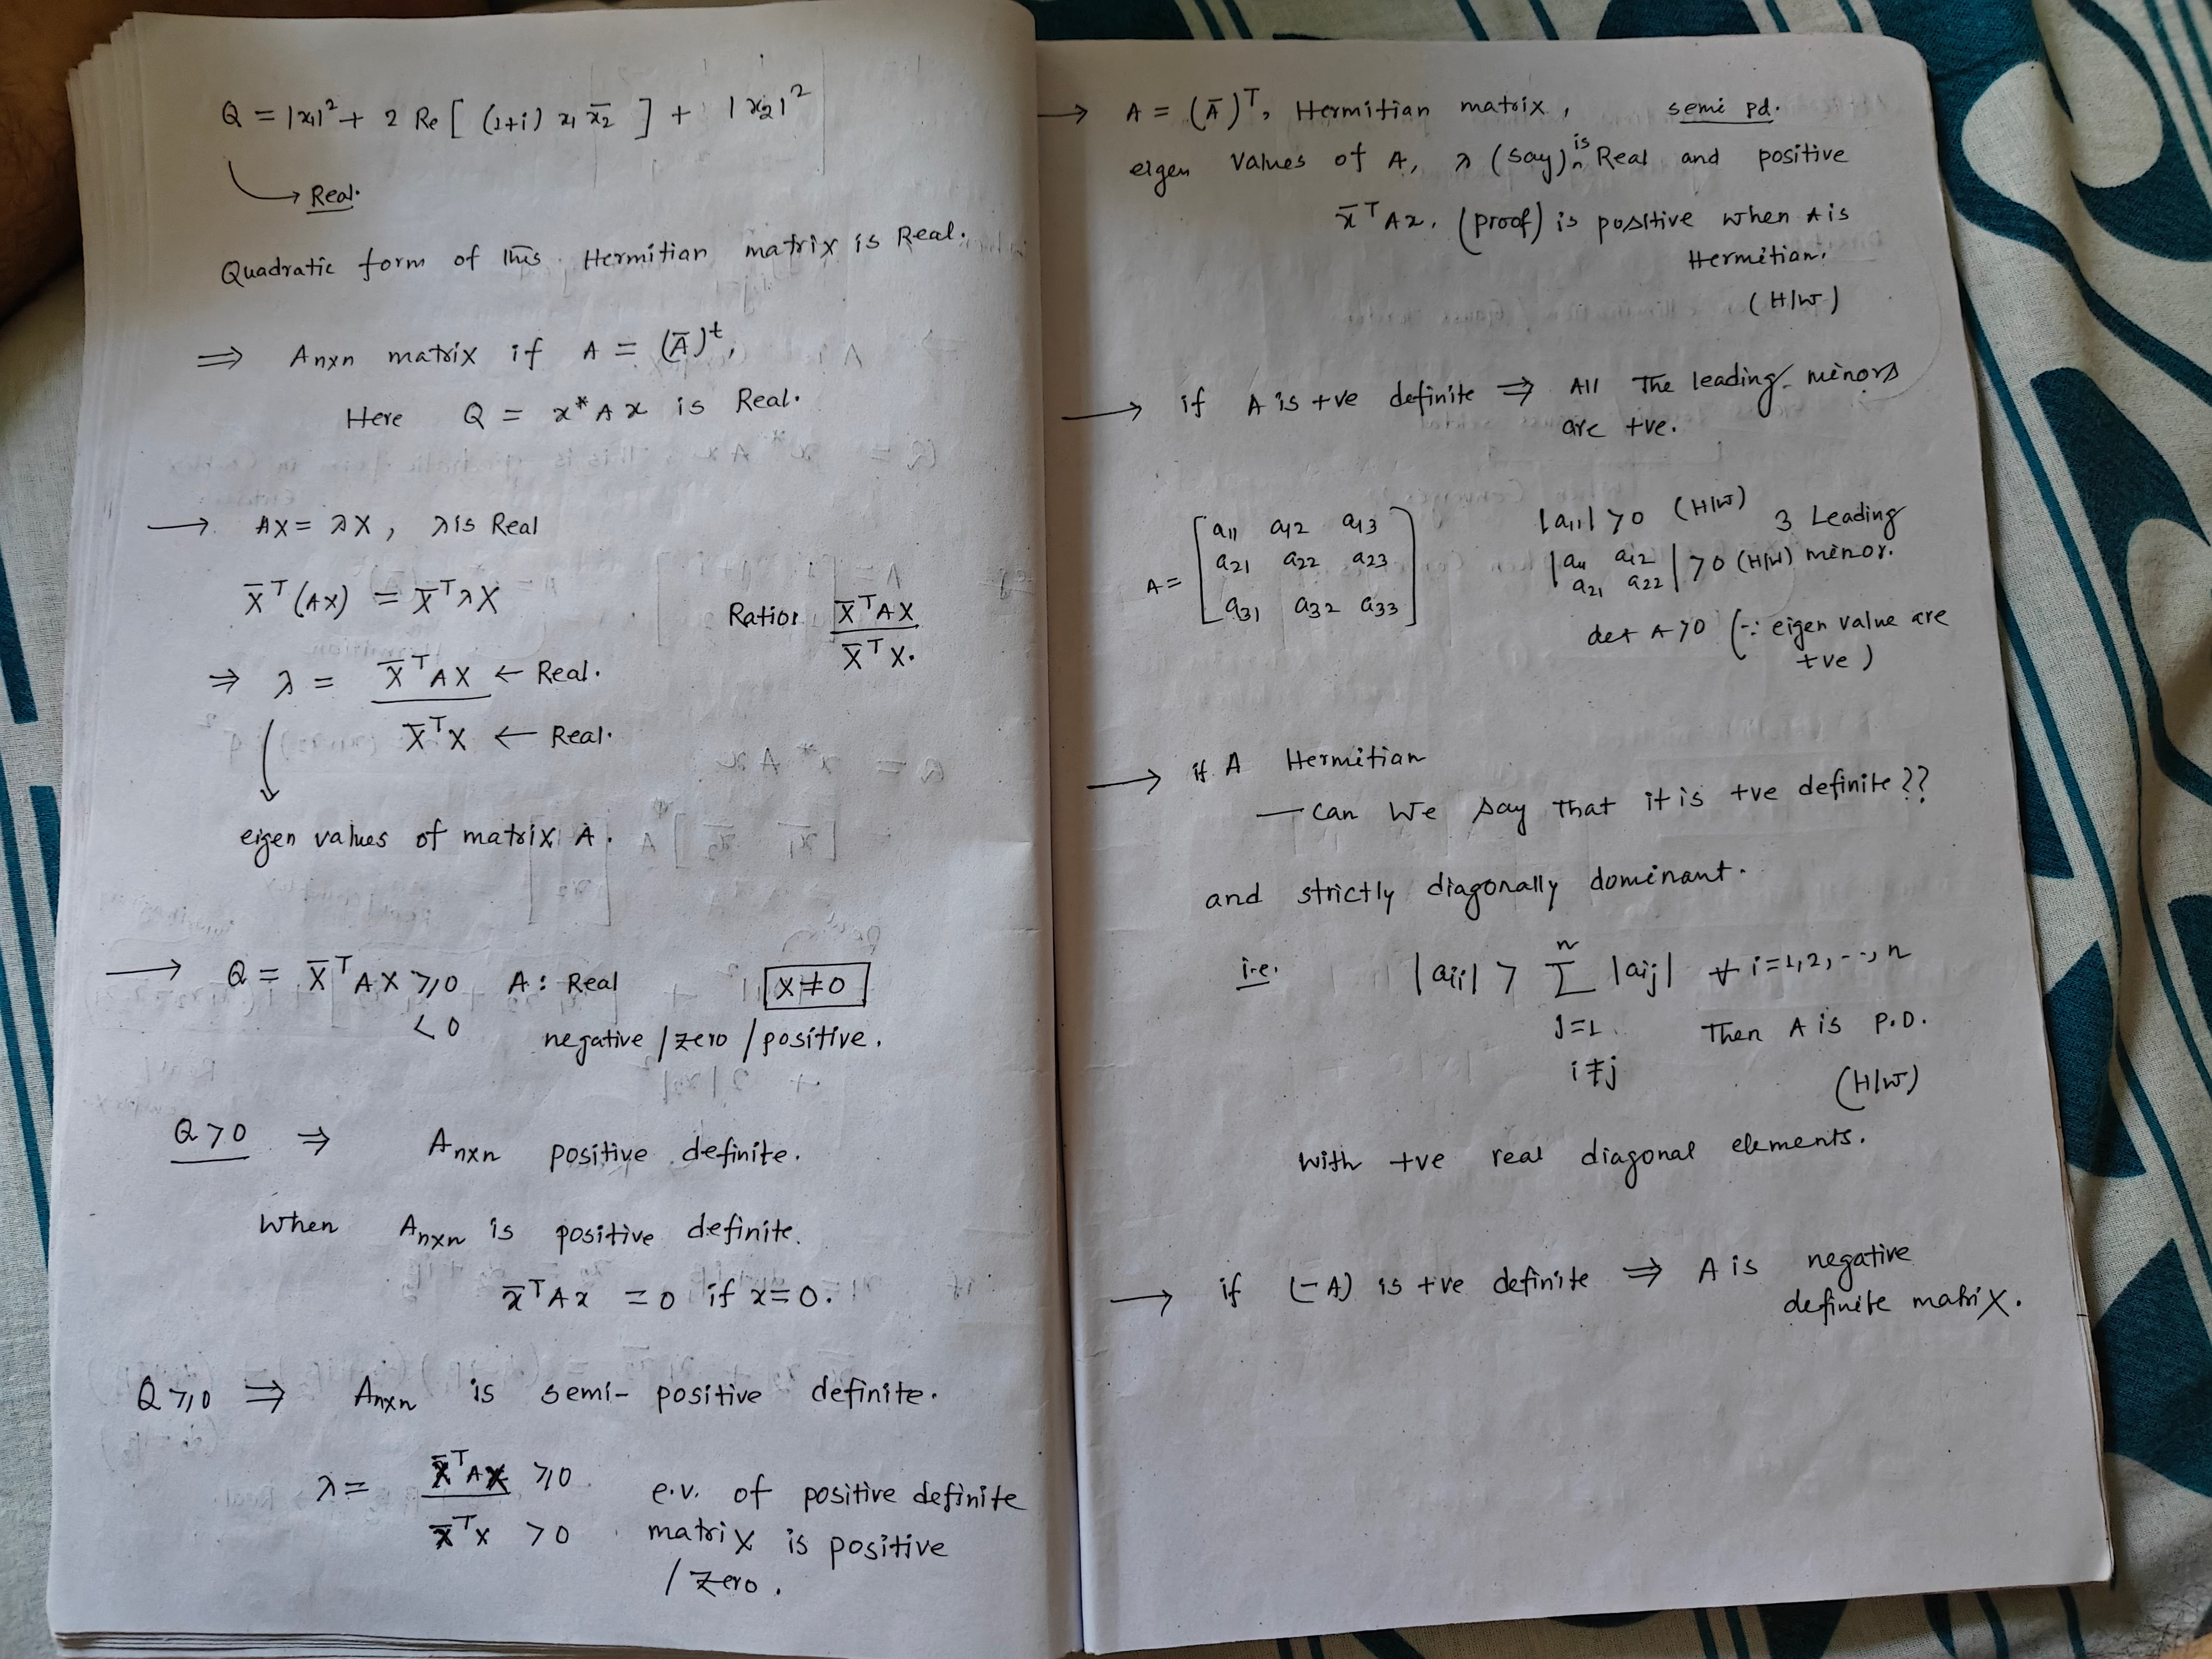 Q = |x₁|² + 2 Re [ (1+i) x₁ x̄₂ ] + |x₂|²
→ Real.
Quadratic form of this Hermitian matrix is Real.
⇒ Anxn matrix if A = (Ā)ᵗ,
Here Q = x* A x is Real.
→ AX = λX, λ is Real
X̄ᵀ(AX) = X̄ᵀλX
Ratio: X̄ᵀAX / X̄ᵀX.
⇒ λ = X̄ᵀAX ← Real.
X̄ᵀX ← Real.
eigen values of matrix A.
→ Q = X̄ᵀAX ≥ 0 A: Real X≠0
< 0 negative / zero / positive.
Q > 0 ⇒ Anxn positive definite.
When Anxn is positive definite.
x̄ᵀAx = 0 if x=0.
Q ≥ 0 ⇒ Anxn is semi-positive definite.
λ = X̄ᵀAX ≥ 0 e.v. of positive definite
x̄ᵀx > 0 matrix is positive
/ zero.
→ A = (Ā)ᵀ, Hermitian matrix, semi pd.
eigen values of A, λ (say) is Real and positive
x̄ᵀAx. (proof) is positive when A is
Hermitian.
(H/W)
→ if A is +ve definite ⇒ All The leading minors
are +ve.
A = [ a11 a12 a13
a21 a22 a23
a31 a32 a33 ]
|a11| > 0 (H/W) 3 Leading
| a11 a12
a21 a22 | > 0 (H/W) minor.
det A > 0 (∵ eigen value are
+ve )
→ if A Hermitian
— Can We say that it is +ve definite??
and strictly diagonally dominant.
i.e. |aii| > Σ |aij| ∀ i=1,2,--, n
n
j=1 Then A is P.D.
i≠j (H/W)
With +ve real diagonal elements.
→ if (-A) is +ve definite ⇒ A is negative
definite matrix.